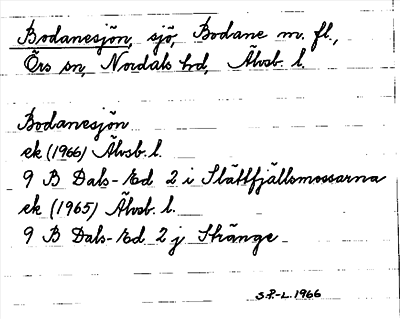 Bodanesjön, sjö, Bodane m. fl.,
Örs sn, Nordals hd, Älvsb. l.
Bodanesjön
ek (1966) Älvsb. l.
9 B Dals-Ed 2 i Slättfjällsmossarna
ek (1965) Älvsb. l.
9 B Dals-Ed 2 j Stränge
S.P.-L. 1966